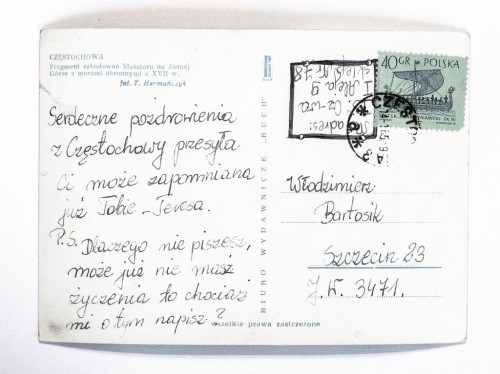 CZĘSTOCHOWA
Fragment zabudowań klasztoru na Jasnej
Górze z murami obronnymi z XVII w.
fot. T. Hermańczyk
Serdeczne pozdrowienia
z Częstochowy przesyła
Ci może zapomniana
już Tobie - Teresa.
P.S. Dlaczego nie piszesz,
może już nie masz
życzenia to chociaż
mi o tym napisz?
BIURO WYDAWNICZE „RUCH"
wszelkie prawa zastrzeżone
adres:
Cz-wa
I Aleja 9
sklep Nr 78
40 GR POLSKA
CZĘSTO
Włodzimierz
Bartosik
Szczecin 23
J.W. 3471.